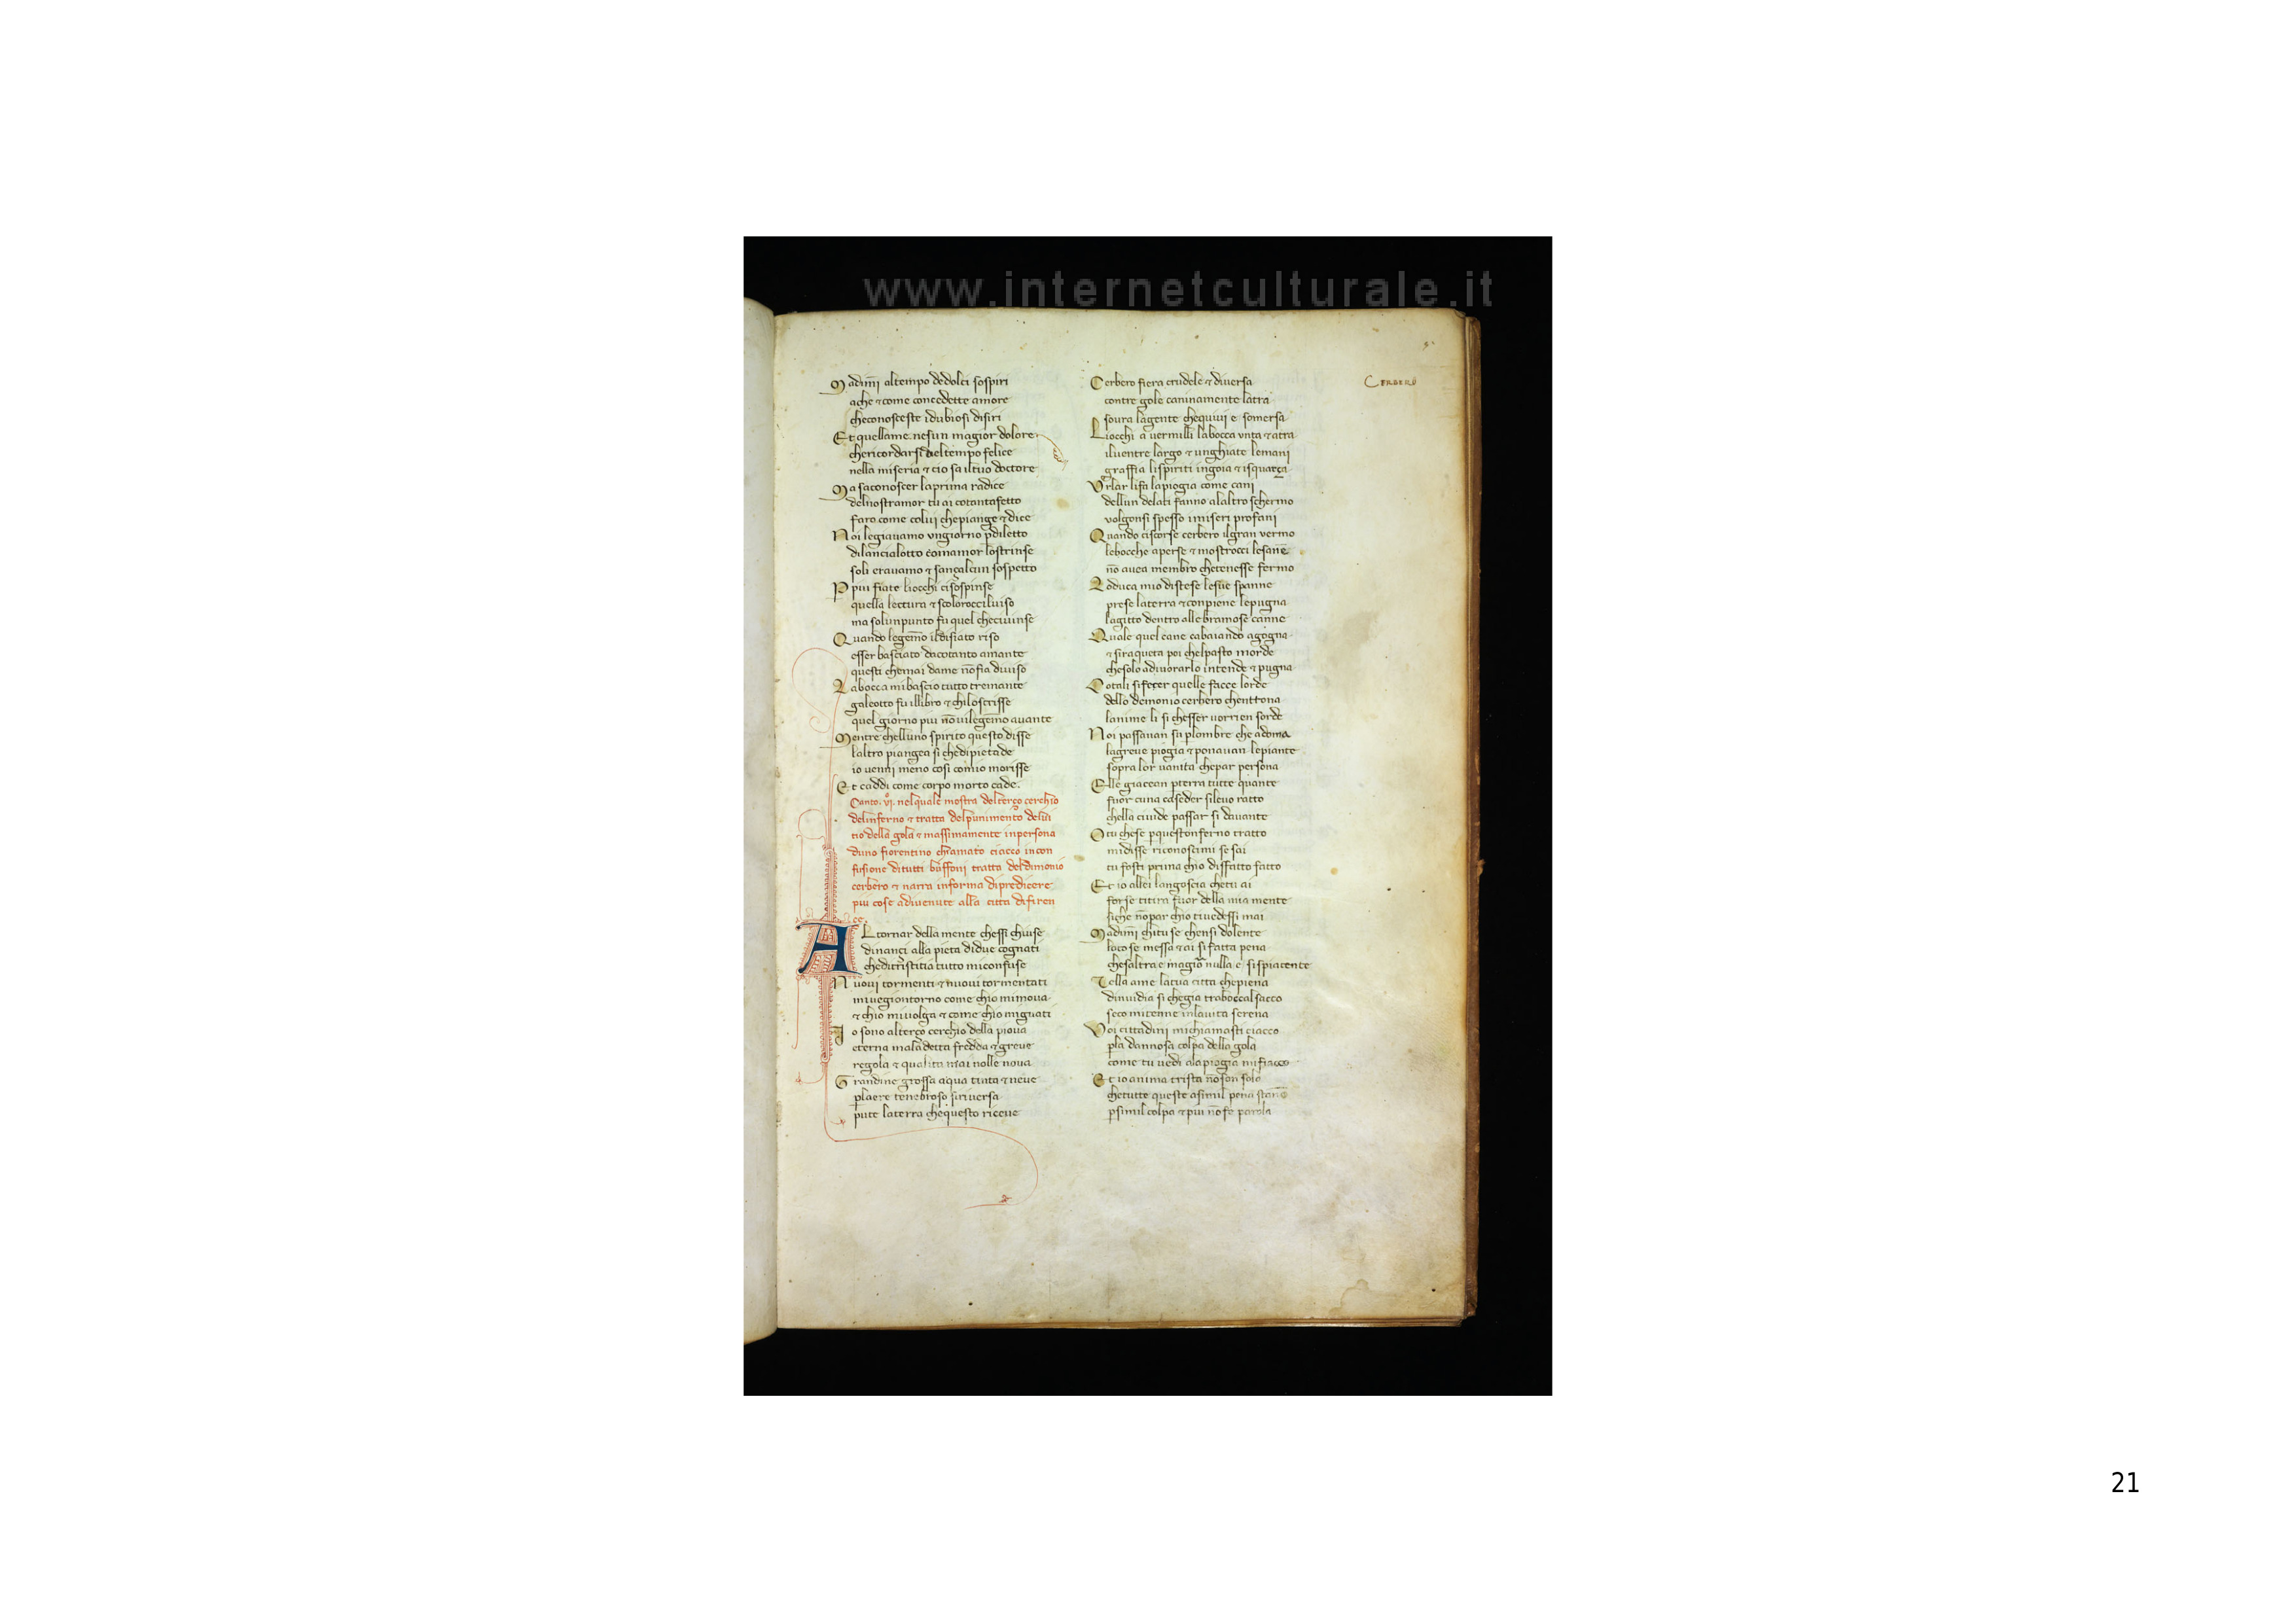 www.internetculturale.it
Madimi altempo dedolci sospiri
ache ⁊ come concedette amore
checonosceste idubiosi disiri
Et quellame nesun magior dolore
chericordarsi deltempo felice
nella miseria ⁊ cio sa iltuo doctore
Ma saconoscer laprima radice
delnostramor tu ai cotantafetto
faro come colui chepiange ⁊ dice
Noi legiavamo ungiorno pdiletto
dilancialotto comamor lostrinse
soli eravamo ⁊ sançalcun sospetto
Ppiu fiate liocchi cisospinse
quella lectura ⁊ scolorocciluiso
ma solunpunto fu quel checiuinse
Quando legemo ildisiato riso
esser basciato dacotanto amante
questi chemai dame nō fia diuiso
La bocca mi bascio tutto tremante
galeotto fu illibro ⁊ chiloscrisse
quel giorno piu nō uilegemo auante
Mentre chelluno spirito questo disse
laltro piangea si chedipietade
io uenni meno cosi comio morisse
Et caddi come corpo morto cade.
Canto .vi. nelquale mostra delterço cerchio
delinferno ⁊ tratta delpunimento delui
tio della gola ⁊ massimamente inpersona
duno fiorentino chiamato ciacco incon
fusione ditutti buffoni tratta deldimonio
cerbero ⁊ narra informa dipredicere
piu cose adiuenute alla citta difiren
ce.
ALtornar della mente chessi chiuse
dinançi alla pieta didue cognati
cheditristitia tutto miconfuse
Nuovi tormenti ⁊ nuoui tormentati
miuegiontorno come chio mimoua
⁊ chio miuolga ⁊ come chio miguati
Io sono alterço cerchio della piova
eterna maladetta fredda ⁊ greue
regola ⁊ qualita mai nolle nova
Grandine grossa aqua tinta ⁊ neue
plaere tenebroso siriversa
pute laterra chequesto riceue
Cerbero fiera crudele ⁊ diversa
contre gole caninamente latra
soura lagente chequiui e somersa
Liocchi a vermilli labocca unta ⁊ atra
iluentre largo ⁊ unghiate lemani
graffia lispiriti ingoia ⁊ isquarça
Urlar lifa lapiogia come cani
dellun delati fanno alaltro schermo
volgonsi spesso imiseri profani
Quando ciscorse cerbero ilgran vermo
lebocche aperse ⁊ mostrocci lesane
nō avea membro chetenesse fermo
Loduca mio distese lesue spanne
prese laterra ⁊ conpiene lepugna
lagitto dentro allebramose canne
Quale quel cane cabaiando agogna
⁊ siraqueta poi chelpasto morde
chesolo adivorarlo intende ⁊ pugna
Cotali sifecer quelle facce lorde
dello demonio cerbero chentrona
lanime li si chesser uorrien sorde
Noi passavan su plombre che adoma
lagreue piogia ⁊ ponauan lepiante
sopra lor uanita chepar persona
Elle giacean pterra tutte quante
fuor cuna caseder sileuo ratto
chella ciuide passar si dauante
O tu chese pquestonferno tratto
midisse riconoscimi se sai
tu fosti prima chio disfatto fatto
Et io allei langoscia chetu ai
forse titira fuor della mia mente
siche nōpar chio tiuedessi mai
Madimi chituse chensi dolente
locose messa ⁊ ai si fatta pena
chesaltra e magior nulla e sispiacente
Cerbero
21
Ed ella ame latua citta chepiena
dinuidia si chegia traboccalsacco
seco mitenne inlauita serena
Voi cittadini michiamasti ciacco
pla dannosa colpa della gola
come tu uedi alapiogia mifiacco
Et io anima trista nōson sola
chetutte queste asimil pena stanno
psimil colpa ⁊ piu nōfe parola